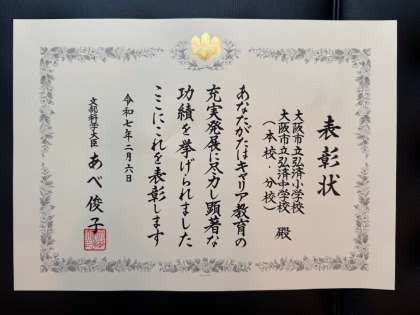 表彰状
大阪市立弘済小学校
大阪市立弘済中学校
（本校・分校）
殿
あなたがたはキャリア教育の
充実発展に尽力し顕著な
功績を挙げられました
ここにこれを表彰します
令和七年二月六日
文部科学大臣 あべ俊子